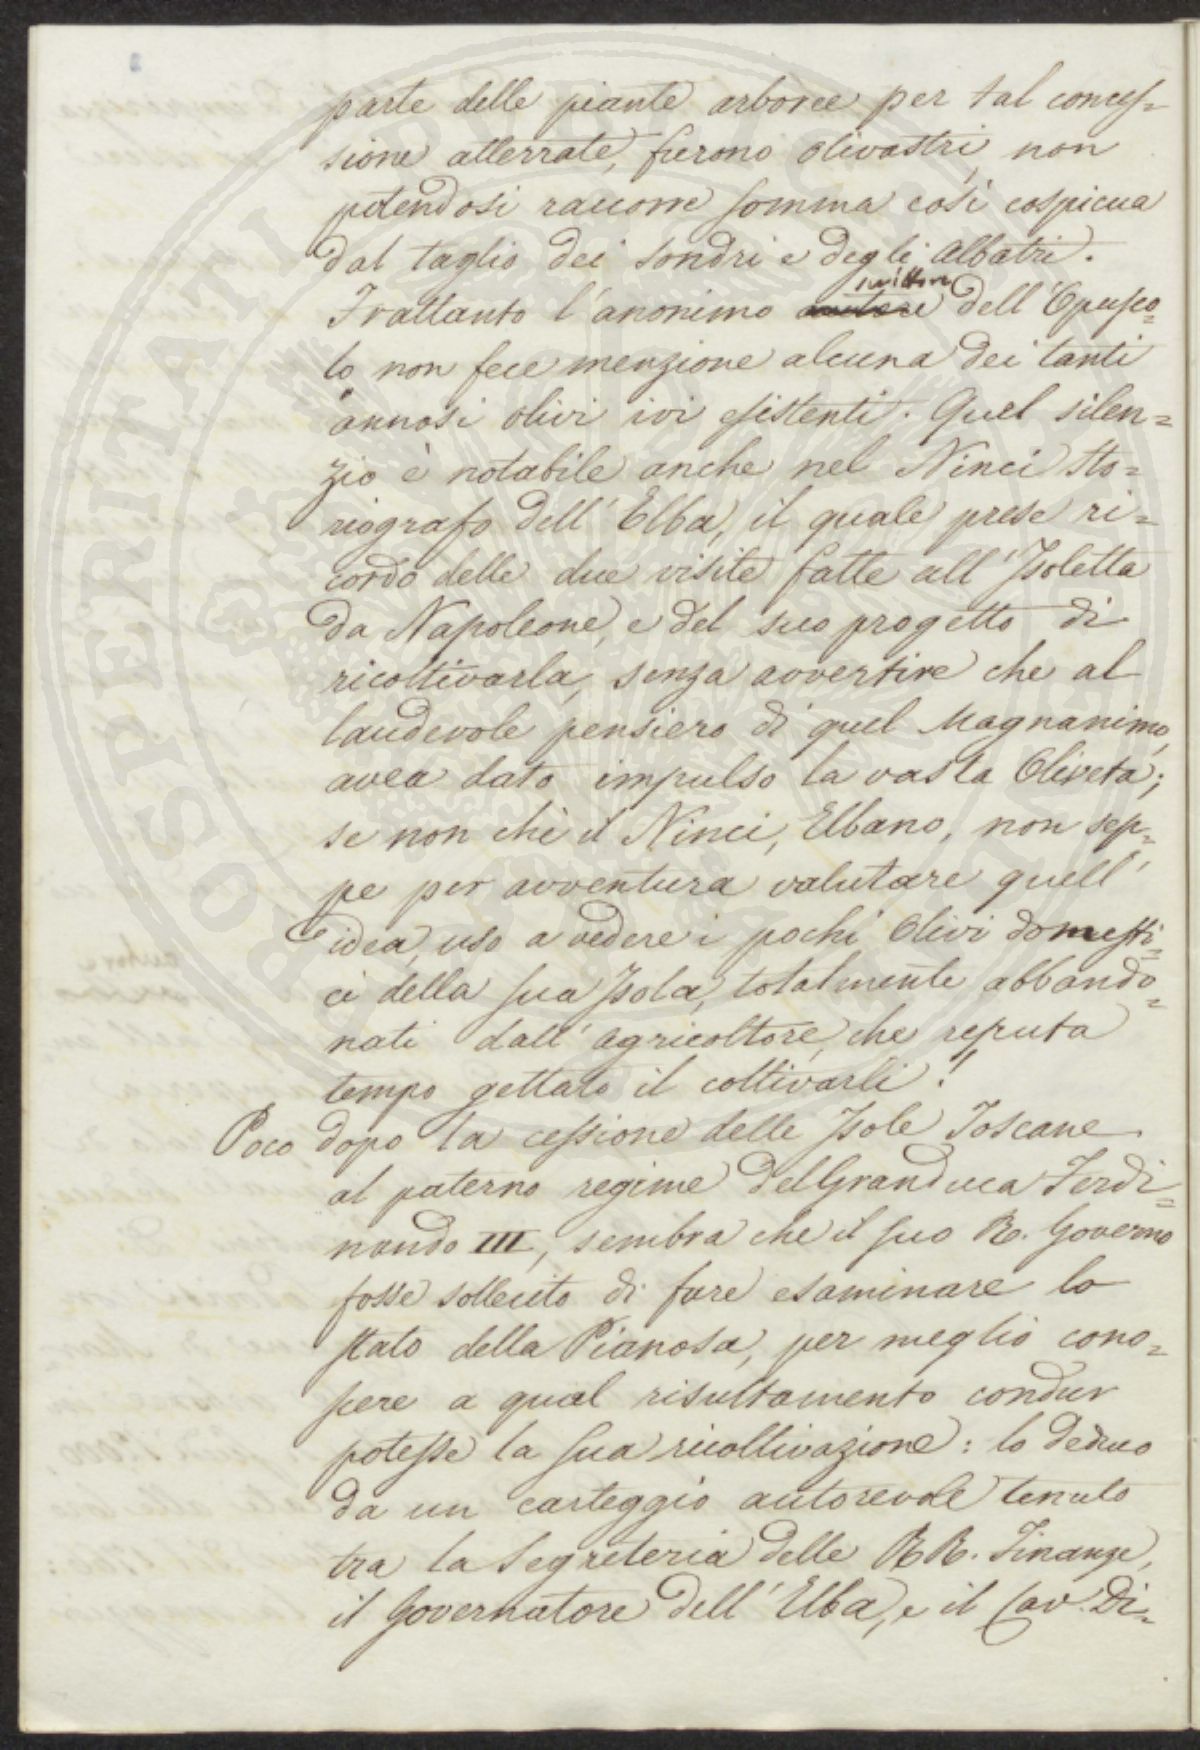 parte delle piante arboree per tal conces=
sione atterrate, furono olivastri, non
potendosi raccorre somma così cospicua
dal taglio dei sondri e degli Albatri.
scrittore
Frattanto l'anonimo autore dell'Opusco=
lo non fece menzione alcuna dei tanti
annosi olivi ivi esistenti. Quel silen=
zio è notabile anche nel Ninci Sto=
riografo dell'Elba, il quale prese ri=
cordo delle due visite fatte all'Isoletta
da Napoleone, e del suo progetto di
ricoltivarla, senza avvertire che al
laudevole pensiero di quel Magnanimo,
avea dato impulso la vasta Oliveta;
se non chè il Ninci, Elbano, non sep=
pe per avventura valutare quell'
idea, uso a vedere i pochi Olivi domesti=
ci della sua Isola, totalmente abbando=
nati dall'agricoltore, che reputa
tempo gettato il coltivarli!
Poco dopo la cessione delle Isole Toscane
al paterno regime del Granduca Ferdi=
nando III, sembra che il suo R. Governo
fosse sollecito di fare esaminare lo
stato della Pianosa, per meglio cono=
scere a qual risultamento condur
potesse la sua ricoltivazione: lo deduco
da un carteggio autorevole tenuto
tra la Segreteria delle RR. Finanze,
il Governatore dell'Elba, e il Cav. Di=
PROSPERITATI PUBLICAE